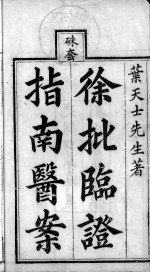 葉天士先生著
徐批臨證
指南醫案
硃套